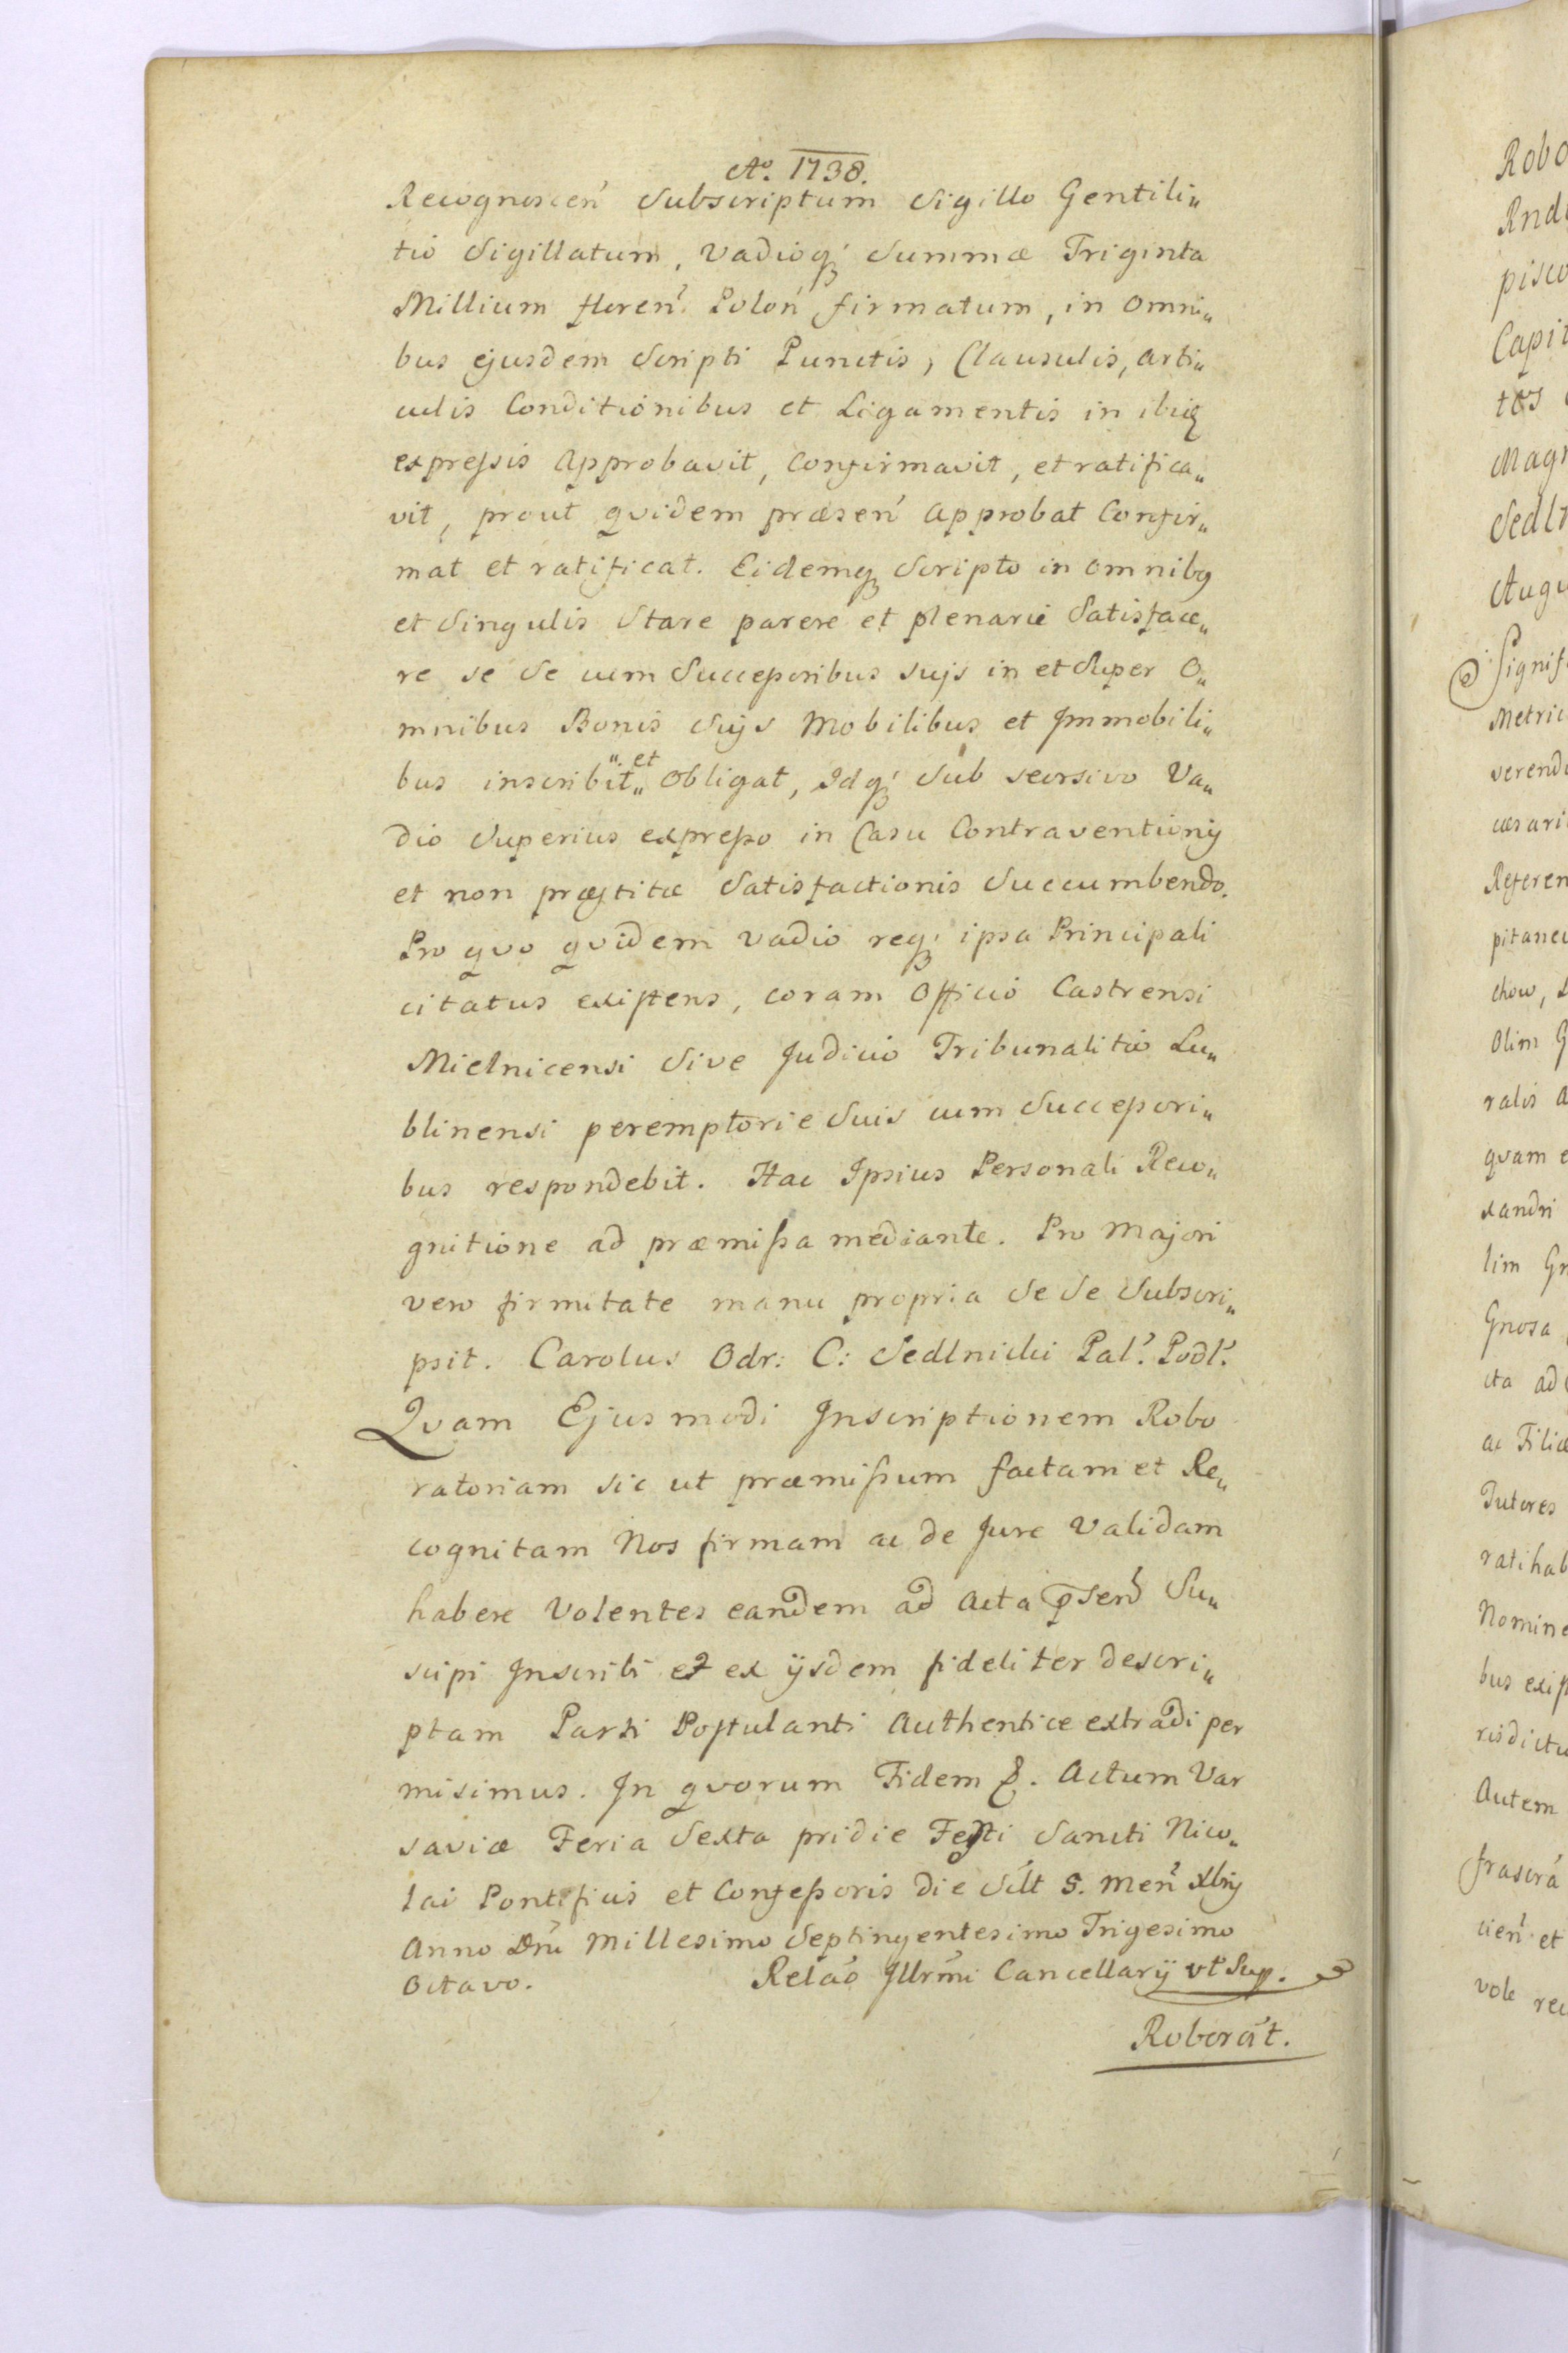 Ao. 1738.
Recognoscen̛ Subscriptum Sigillo Gentili„
tio Sigillatum, Vadioq; Summæ Triginta
Millium floren̛. Polon̛ firmatum, in omni„
bus ejusdem Scripti Punctis, Clausulis, arti„
culis Conditionibus et Ligamentis in ibiq
expreſsis Approbavit, Confirmavit, et ratifica„
vit, prout qvidem præsen̛ approbat Confir„
mat et ratificat. Eidemq Scripto in omnibq
et Singulis Stare parere et plenarie Satisface„
re se Se cum Succeſsoribus suijs in et Super O„
mnibus Bonis Suijs Mobilibus et Immobili„
bus inscribit „et„ obligat, Idq; Sub seorsivo Va„
dio Superius expreſso in Casu Contraventionij
et non præstitæ Satisfactionis Succumbendo.
Pro qvo qvidem vadio req; ipsa Principali
citatus existens, coram Officio Castrensi
Mielnicensi Sive Judicio Tribunalitio Lu„
blinensi peremptorie Suis cum Succeſsori„
bus respondebit. Hac Ipsius Personali Reco„
gnitione ad præmiſsa mediante. Pro Majori
vero firmitate manu propria Se Se Subscri„
psit. Carolus Odr: C: Sedlnicki Pal̛. Podl̛.
Qvam Ejusmodi Inscriptionem Robo
ratoriam sic ut præmiſsum factam et Re„
cognitam Nos firmam ac de Jure Validam
habere Volentes eandem ad Acta p̄sen̛ Su„
scipi Inscribi et ex ijsdem fideliter descri„
ptam Parti Postulanti Authentice extradi per
misimus. In qvorum Fidem &. Actum Var
saviæ Feria Sexta pridie Festi Sancti Nico„
lai Pontificis et Confeſsoris die Scilt 5. Men̛ Xbrij
Anno Dni̅ Millesimo Septingentesimo Trigesimo
Octavo. Relao̅ Illrmi̅ Cancellarij vt Sup.
Roborat̅.
Robo
Rnd
pisco
Capit
tos
Magn
Sedln
Augu
Signif
Metric
verend
cæsari
Referen
pitaneu
chow,
Olim G
ralis a
qvam e
xandri
lim Gn
Gnosa
cta ad
ac Filiæ
Tutores
ratihab
Nomine
bus exis
risdictu
Autem
frascra̅
cien̛ et
vole rec